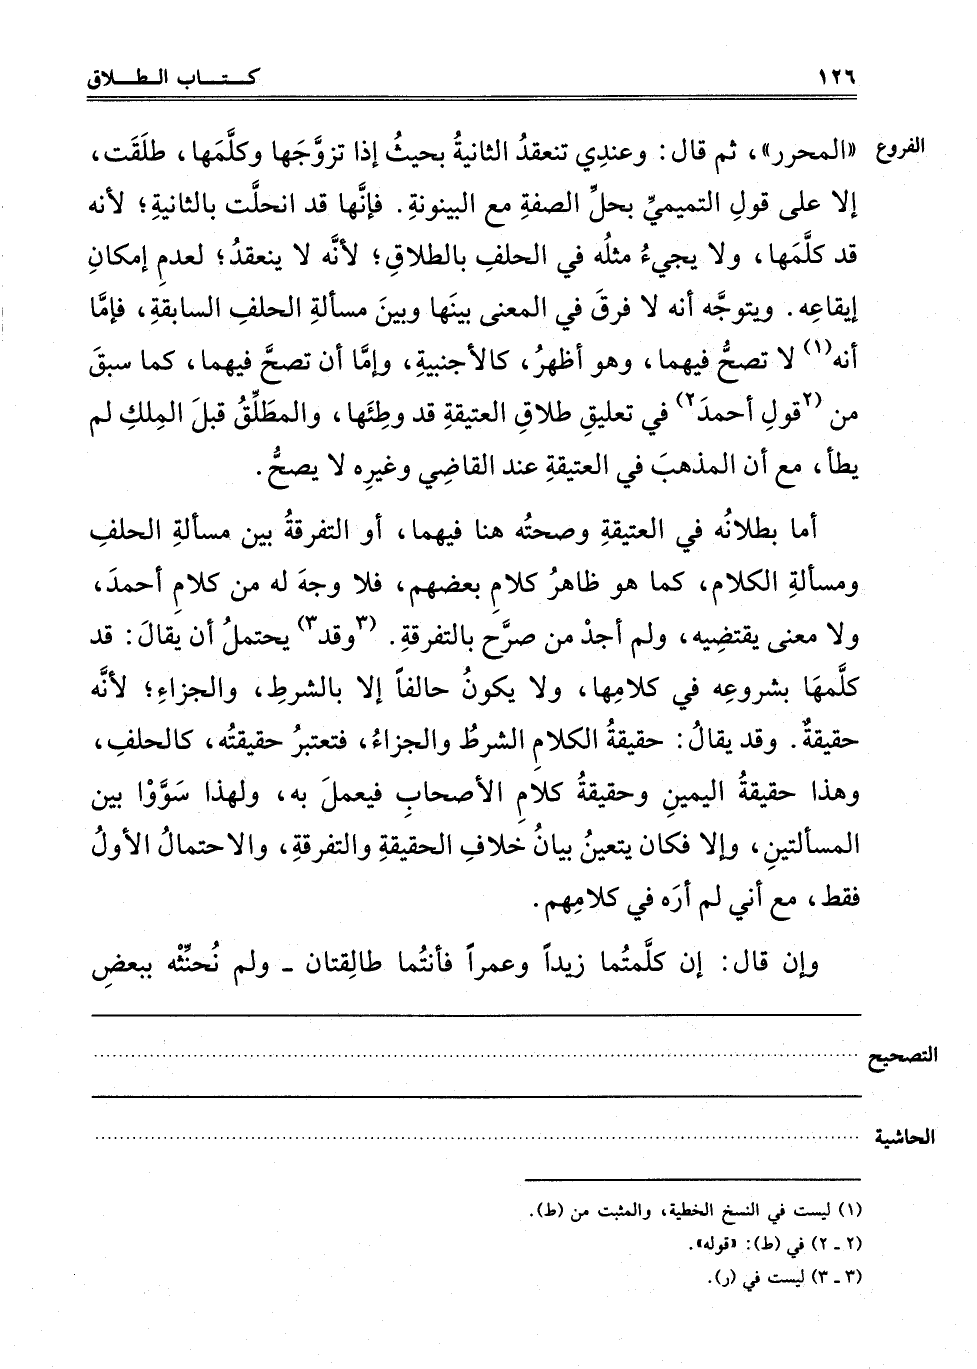 ١٢٦
كـتـاب الـطـلاق
الفروع
«المحرر»، ثم قال: وعندِي تنعقدُ الثانيةُ بحيثُ إذا تزوَّجَها وكلَّمَها، طلَقَت،
إلا على قولِ التميميِّ بحلِّ الصفةِ مع البينونةِ. فإنَّها قد انحلَّت بالثانيةِ؛ لأنه
قد كلَّمَها، ولا يجيءُ مثلُه في الحلفِ بالطلاقِ؛ لأنَّه لا ينعقدُ؛ لعدمِ إمكانِ
إيقاعِه. ويتوجَّه أنه لا فرقَ في المعنى بينَها وبينَ مسألةِ الحلفِ السابقةِ، فإمَّا
أنه(١) لا تصحُّ فيهما، وهو أظهرُ، كالأجنبيةِ، وإمَّا أن تصحَّ فيهما، كما سبقَ
من (٢قولِ أحمدَ٢) في تعليقِ طلاقِ العتيقةِ قد وطِئَها، والمطَلِّقُ قبلَ المِلكِ لم
يطأ، مع أن المذهبَ في العتيقةِ عند القاضِي وغيرِه لا يصحُّ.
أما بطلانُه في العتيقةِ وصحتُه هنا فيهما، أو التفرقةُ بين مسألةِ الحلفِ
ومسألةِ الكلامِ، كما هو ظاهرُ كلامِ بعضهم، فلا وجهَ له من كلامِ أحمدَ،
ولا معنى يقتضِيه، ولم أجدْ من صرَّح بالتفرقةِ. (٣وقد٣) يحتملُ أن يقالَ: قد
كلَّمهَا بشروعِه في كلامِها، ولا يكونُ حالفاً إلا بالشرطِ، والجزاءِ؛ لأنَّه
حقيقةٌ. وقد يقالُ: حقيقةُ الكلامِ الشرطُ والجزاءُ، فتعتبرُ حقيقتُه، كالحلفِ،
وهذا حقيقةُ اليمينِ وحقيقةُ كلامِ الأصحابِ فيعملَ به، ولهذا سَوَّوْا بين
المسألتينِ، وإلا فكان يتعينُ بيانُ خلافِ الحقيقةِ والتفرقةِ، والاحتمالُ الأولُ
فقط، مع أني لم أرَه في كلامِهم.
وإن قال: إن كلَّمتُما زيداً وعمراً فأنتُما طالِقتان ـ ولم نُحنِّثْه ببعضِ
التصحيح
الحاشية
(١) ليست في النسخ الخطية، والمثبت من (ط).
(٢ ـ ٢) في (ط): «قوله».
(٣ ـ ٣) ليست في (ر).